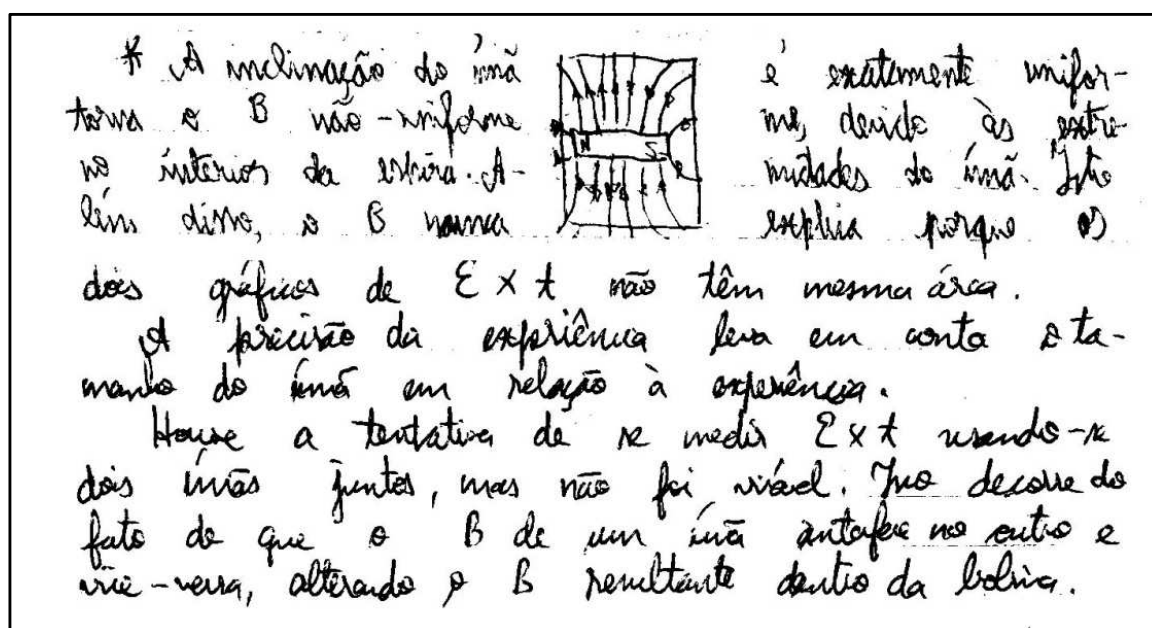 * A inclinação do ímã
torna o B não-uniforme
no interior da espira. A-
lém disso, o B nunca
N S
é exatamente unifor-
me, devido às extre-
midades do ímã. Isto
explica porque os
dois gráficos de Ɛ x t não têm mesma área.
A precisão da experiência leva em conta o ta-
manho do ímã em relação à experiência.
Houve a tentativa de se medir Ɛ x t usando-se
dois ímãs juntos, mas não foi viável. Isso decorre do
fato de que o B de um ímã intefere no outro e
vice-versa, alterando o B resultante dentro da bobina.